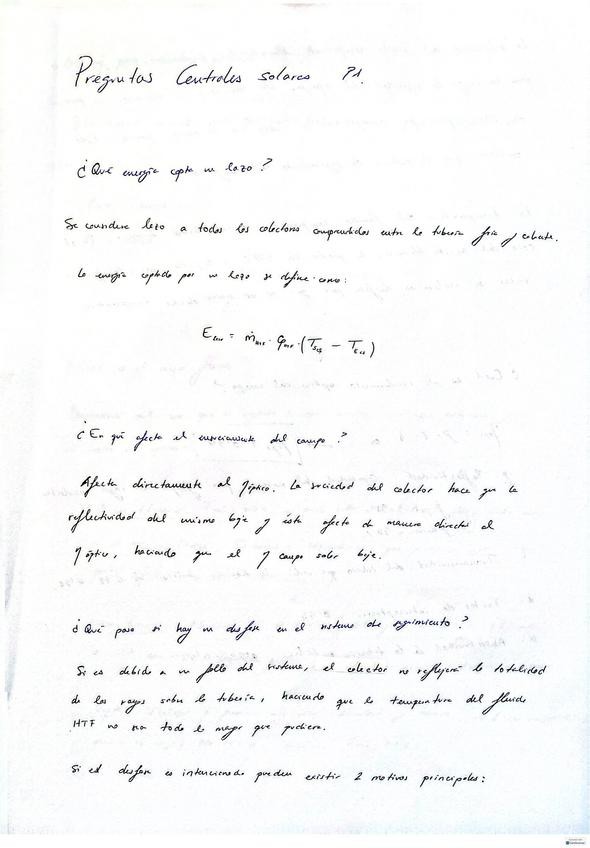 Preguntas Centrales solares P1.
¿Qué energía capta un lazo?
Se considera lazo a todos los colectores comprendidos entre la tubería fría y caliente.
La energía captada por un lazo se define como:
¿En qué afecta el ensuciamiento del campo?
Afecta directamente al ηóptico. La suciedad del colector hace que la
reflectividad del mismo baje y ésta afecta de manera directa al
η óptico, haciendo que el η campo solar baje.
¿Qué pasa si hay un desfase en el sistema de seguimiento?
Si es debido a un fallo del sistema, el colector no reflejará la totalidad
de los rayos sobre la tubería, haciendo que la temperatura del fluido
HTF no sea todo lo mayor que pudiera.
Si el desfase es intencionado pueden existir 2 motivos principales: